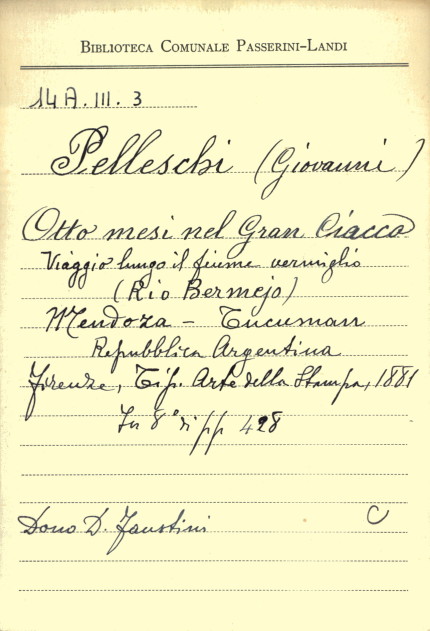 BIBLIOTECA COMUNALE PASSERINI-LANDI
14 A. III. 3
Pelleschi (Giovanni)
Otto mesi nel Gran Ciacco
Viaggio lungo il fiume vermiglio
(Rio Bermejo)
Mendoza - Tucuman
Repubblica Argentina
Firenze, Tip. Arte della Stampa, 1881
In 8° di pp 428
Dono D. Faustini
C